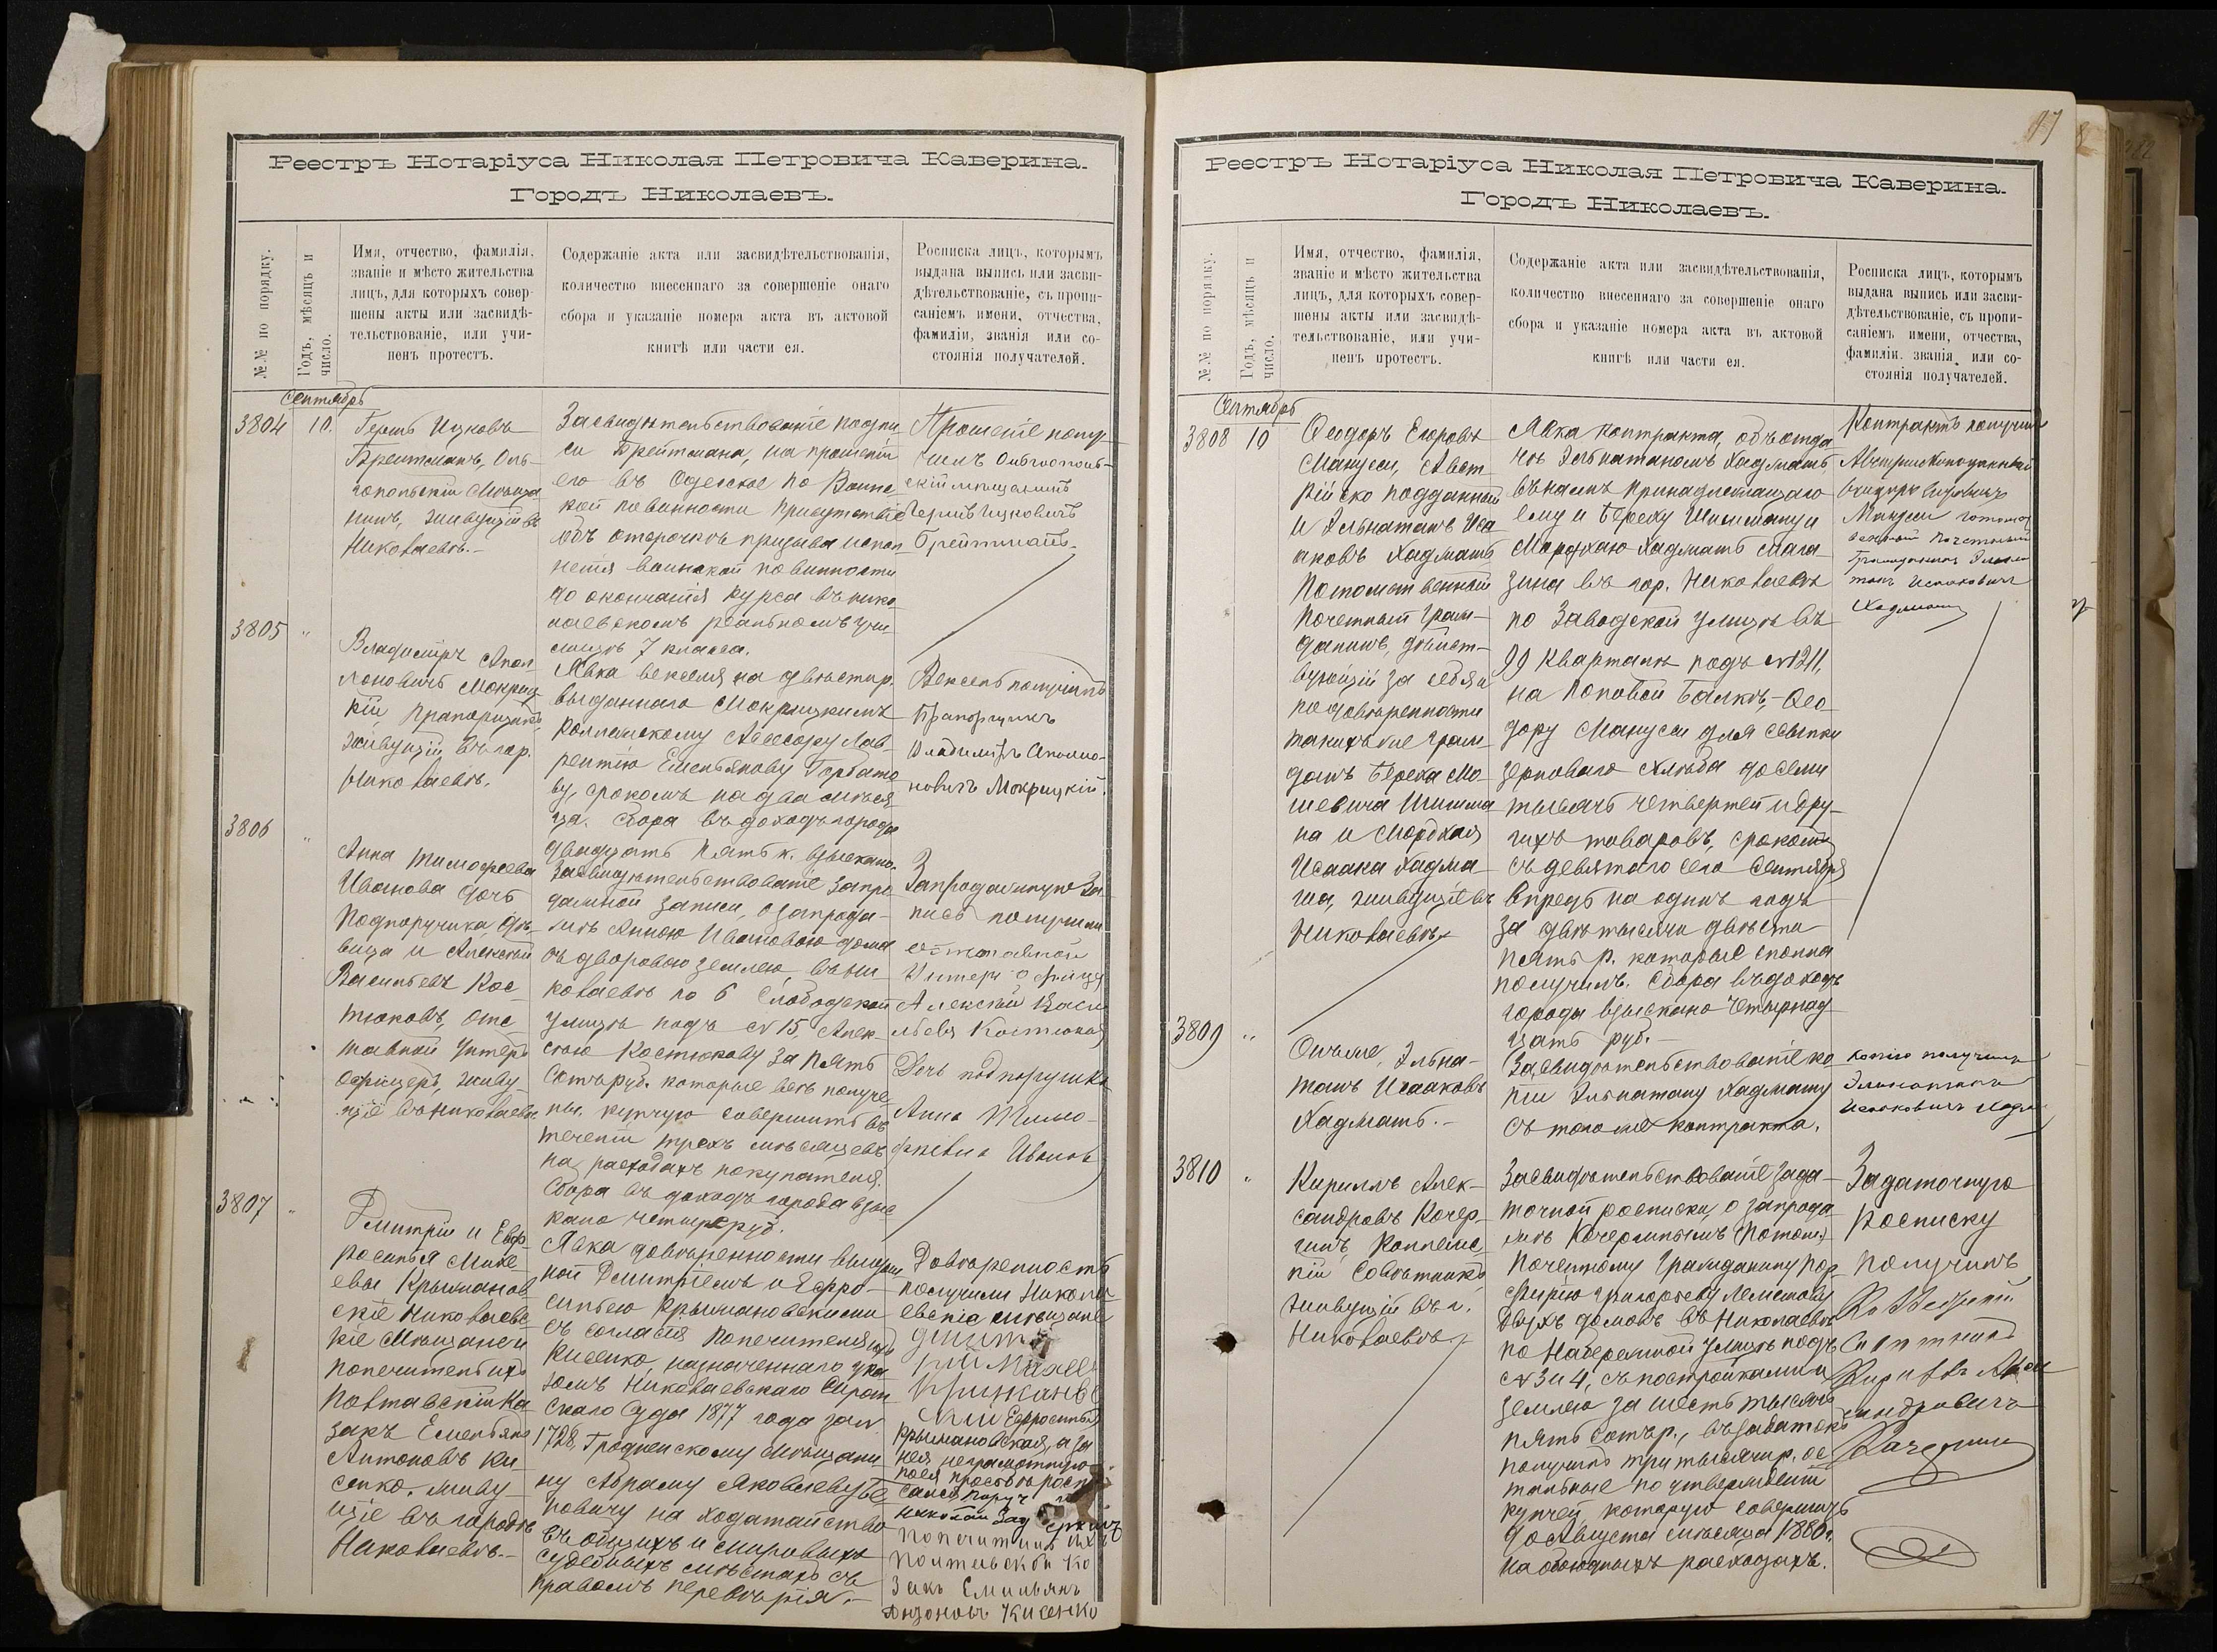 Реестръ Нотаріуса Николая Петровича Каверина.
Городъ Николаевъ.
№№ по порядку.
Годъ, мѣсяцъ и
число.
Имя, отчество, фамилія,
званіе и мѣсто жительства
лицъ, для которыхъ совер-
шены акты или засвидѣ-
тельствованіе, или учи-
ненъ протестъ.
Содержаніе акта или засвидѣтельствованія,
количество внесеннаго за совершеніе онаго
сбора и указаніе номера акта въ актовой
книгѣ или части ея.
Росписка лицъ, которымъ
выдана выпись или засви-
дѣтельствованіе, съ пропи-
саніемъ имени, отчества,
фамиліи, званія или со-
стоянія получателей.
Сентябрь
3804
10.
Гершъ Ицковъ
Брейтманъ, Оль-
гопольскій мѣща
нинъ, живущій въ
Николаевѣ.-
Засвидѣтельствованіе подпи
си Брейтмана, на прошеніи
его въ Одесское по Воинс
кой повинности Присутствіе
объ отсрочкѣ призыва испол
ненія воинской повинности
до окончанія курса въ нико
лаевскомъ реальномъ учи
лищѣ 7 класса.
Прошеніе полу-
чилъ Ольгополь-
скій мѣщанинъ
Гершъ Ицковичъ
Брейтманъ.
3805
"
Владиміръ Апол
лоновичъ Мокриц
кій Прапорщикъ,
живущій въ гор.
Николаевѣ.
Явка векселя на двѣсти р.
выданнаго Мокрицкимъ
Коллежскому Ассесору Лав
рентію Емельянову Горбато
ву, срокомъ на два мѣся
ца. Сбора въ доходъ города
двадцать пять к. взыскано.
Вексель получилъ
Прапорщикъ
Владиміръ Аполло-
новичъ Мокрицкій.
3806
"
Анна Тимофеева
Иванова дочь
Подпоручика, дѣ-
вица и Алексѣй
Васильевъ Кос-
тюковъ, отс
тавной Унтеръ
Офицеръ, живу-
щіе въ Николаевѣ
Засвидѣтельствованіе запро
дажной записи, о запрода-
жѣ Анною Ивановою дома
съ дворовою землею, въ ни-
колаевѣ по 6 Слободской
улицѣ подъ № 15, Алек-
сѣю Костюкову за пять
сотъ руб. которые всѣ получе
ны, купчую совершить въ
теченіи трехъ мѣсяцевъ
на расходахъ покупателя.
Сбора въ доходъ города взыс
кано четыре руб.
Запродажную За
пись получили
отставной
Унтеръ офицеръ
Алексѣй Васи
льевъ Костюковъ
Дочь подпоручика
Анна Тимо-
феевна Иванова
3807
"
Дмитрій и Евф-
росинья Михе
евы Крыжановс
кіе Николаевс
кіе Мѣщане и
попечитель ихъ
Полтавскій Ка
закъ Емельянъ
Антоновъ Ки-
сенко, живу-
щіе въ городѣ
Николаевѣ.-
Явка довѣренности выдан
ной Дмитріемъ и Евфро-
синьею Крыжановскими
съ согласія Попечителя ихъ
Кисенко, назначеннаго ука
зомъ Николаевскаго Сирот
скаго Суда 1877 года за №
1728, Гродненскому мѣщани
ну Абраму Яковлевичу
новичу на ходатайство
въ общихъ и мировыхъ
судебныхъ мѣстахъ съ
правомъ передовѣрія.-
Довѣренность
получили Никола
евскіе мѣщане
Дмит
рій Михее
Крижанов
скій Ефросинья
Крыжановская, а за
нея неграмотную
по ея просьбѣ роспи
сался поруч
Николай
Попечитель ихъ
Полтавскій Ко
закъ Емильянъ
Антоновъ Кисенко
17
Реестръ Нотаріуса Николая Петровича Каверина.
Городъ Николаевъ.
№№ по порядку.
Годъ, мѣсяцъ и
число.
Имя, отчество, фамилія,
званіе и мѣсто жительства
лицъ, для которыхъ совер-
шены акты или засвидѣ-
тельствованіе, или учи-
ненъ протестъ.
Содержаніе акта или засвидѣтельствованія,
количество внесеннаго за совершеніе онаго
сбора и указаніе номера акта въ актовой
книгѣ или части ея.
Росписка лицъ, которымъ
выдана выпись или засви-
дѣтельствованіе, съ пропи-
саніемъ имени, отчества,
фамиліи. званія или со-
стоянія получателей.
Сентябрь
3808
10
Ѳеодоръ Егоровъ
Мануси, Авст
рійско подданный
и Эльнатанъ Иса
аковъ Хаджашъ
Потомственный
почетный граж-
данинъ, дѣйст-
вующій за себя и
по довѣренности
такихъ же граж
данъ Береха Мо-
шевича Шишма
на и Мордхая
Исаака Хаджа-
ша, живущіе въ
Николаевѣ.
Явка контракта, объ отда
чѣ Эльнатаномъ Хаджашъ
въ наемъ принадлежащаго
ему и Береху Шишману и
Мордхаю Хаджашъ мага-
зина въ гор. Николаевѣ
по Заводской улицѣ въ
99 кварталѣ подъ № 1211,
на Поповой Балкѣ, - Ѳео-
дору Мануси для ссыпки
зерноваго хлѣба до семи
тысячъ четвертей и дру-
гихъ товаровъ, срокомъ
съ девятаго сего Сентября
впредь на одинъ годъ
за двѣ тысячи двѣсти
пять р. которые сполна
получилъ. Сбора въ доходъ
города взыскано четырнад
цать руб.-
Контрактъ получили
Мануси потомст
венный Почетный
Гражданинъ Эльна
танъ Исааковичъ
Хаджашъ
3809
"
Онъ же, Эльна-
танъ Исааковъ
Хаджашъ.-
Засвидѣтельствованіе ко
піи Эльнатану Хаджашу
съ того же контракта.
Копію получилъ
Эльнатанъ
Исааковичъ Хаджа
3810
"
Кириллъ Алек-
сандровъ Кочер-
гинъ, Коллежс
кій Совѣтникъ
живущій въ г.
Николаевѣ.
Засвидѣтельствованіе зада-
точной росписки, о запрода
жѣ Кочергинымъ Потом.
Почетному Гражданину Пор-
фирію Григорьеву
двухъ домовъ въ Николаевѣ
по Набережной улицѣ подъ
№ 3 и 4, съ постройками и
землею за шесть тысячъ
пять сотъ р., въ задатокъ
получилъ три тысячи р. ос
тальные по утвержденіи
купчей, которую совершить
до Августа мѣсяца 1880 г.
на обоюдныхъ расходахъ.
Задаточную
Росписку
получилъ
Кириллъ Алек
сандровичъ
Кочергинъ